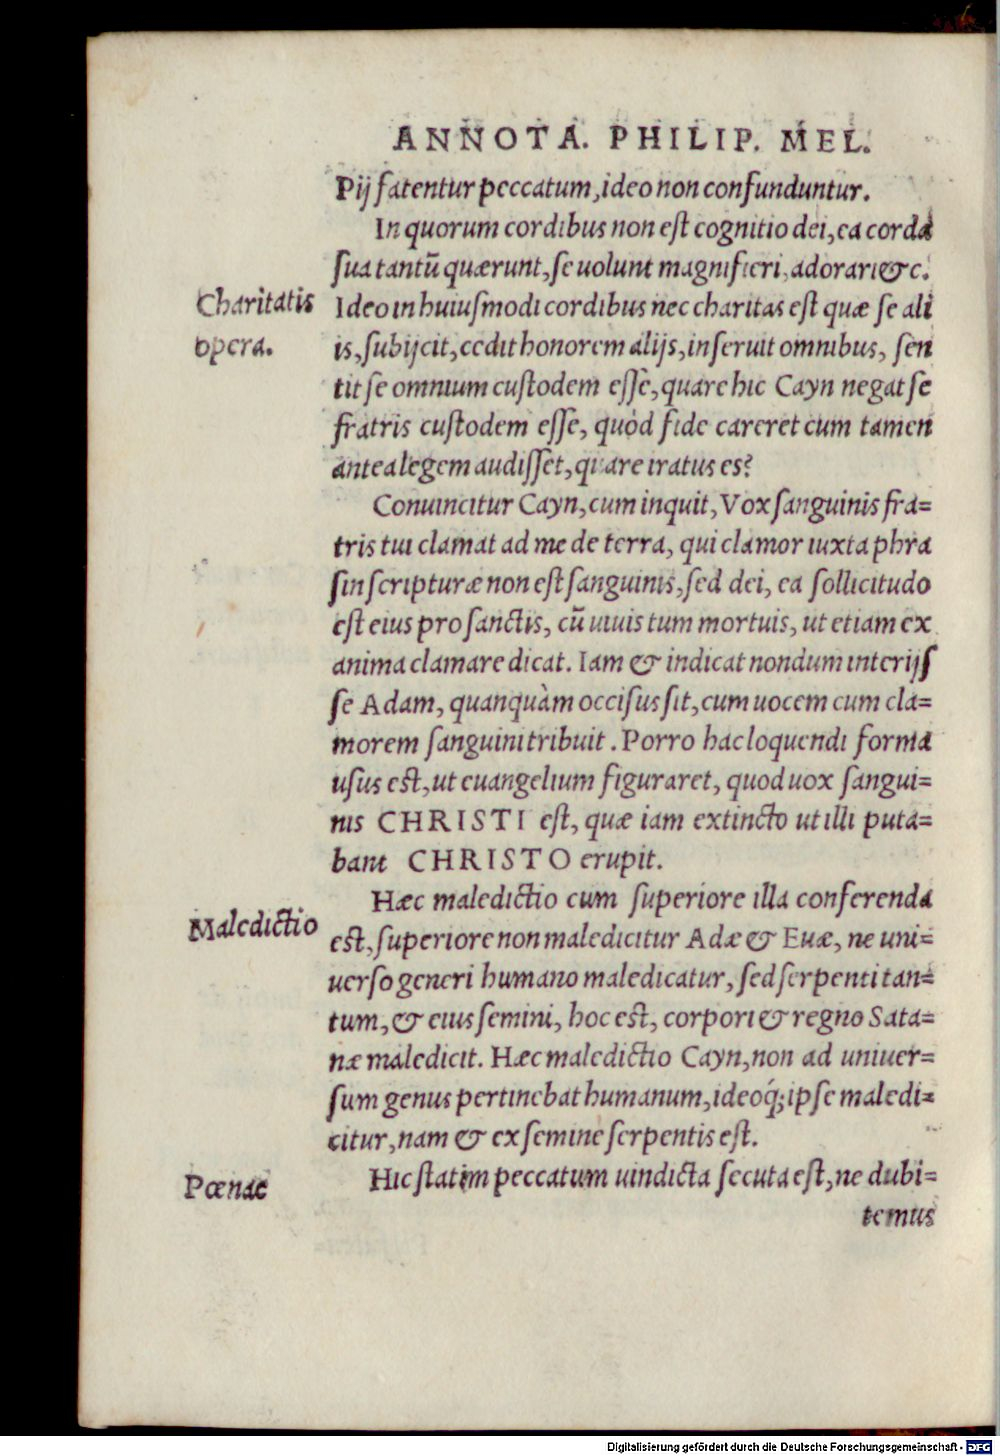 ANNOTA. PHILIP. MEL.
Pij fatentur peccatum, ideo non confunduntur.
In quorum cordibus non est cognitio dei, ea corda
sua tantũ quærunt, se uolunt magnifieri, adorari &c.
Charitatis
opera.
Ideo in huiusmodi cordibus nec charitas est quæ se ali
is, subijcit, cedit honorem alijs, inseruit omnibus, sen
tit se omnium custodem esse, quare hic Cayn negat se
fratris custodem esse, quòd fide careret cum tamen
antea legem audisset, quare iratus es?
Conuincitur Cayn, cum inquit, Vox sanguinis fra=
tris tui clamat ad me de terra, qui clamor iuxta phra
sin scripturæ non est sanguinis, sed dei, ea sollicitudo
est eius pro sanctis, cũ uiuis tum mortuis, ut etiam ex
anima clamare dicat. Iam & indicat nondum interijs
se Adam, quanquàm occisus sit, cum uocem cum cla=
morem sanguini tribuit. Porro hac loquendi forma
usus est, ut euangelium figuraret, quod uox sangui=
nis CHRISTI est, quæ iam extincto ut illi puta=
bant CHRISTO erupit.
Maledictio
Hæc maledictio cum superiore illa conferenda
est, superiore non maledicitur Adæ & Euæ, ne uni=
uerso generi humano maledicatur, sed serpenti tan=
tum, & eius semini, hoc est, corpori & regno Sata=
næ maledicit. Hæc maledictio Cayn, non ad uniuer=
sum genus pertinebat humanum, ideoq́; ipse maledi=
citur, nam & ex semine serpentis est.
Pœnae
Hic statim peccatum uindicta secuta est, ne dubi=
temus
Digitalisierung gefördert durch die Deutsche Forschungsgemeinschaft - DFG